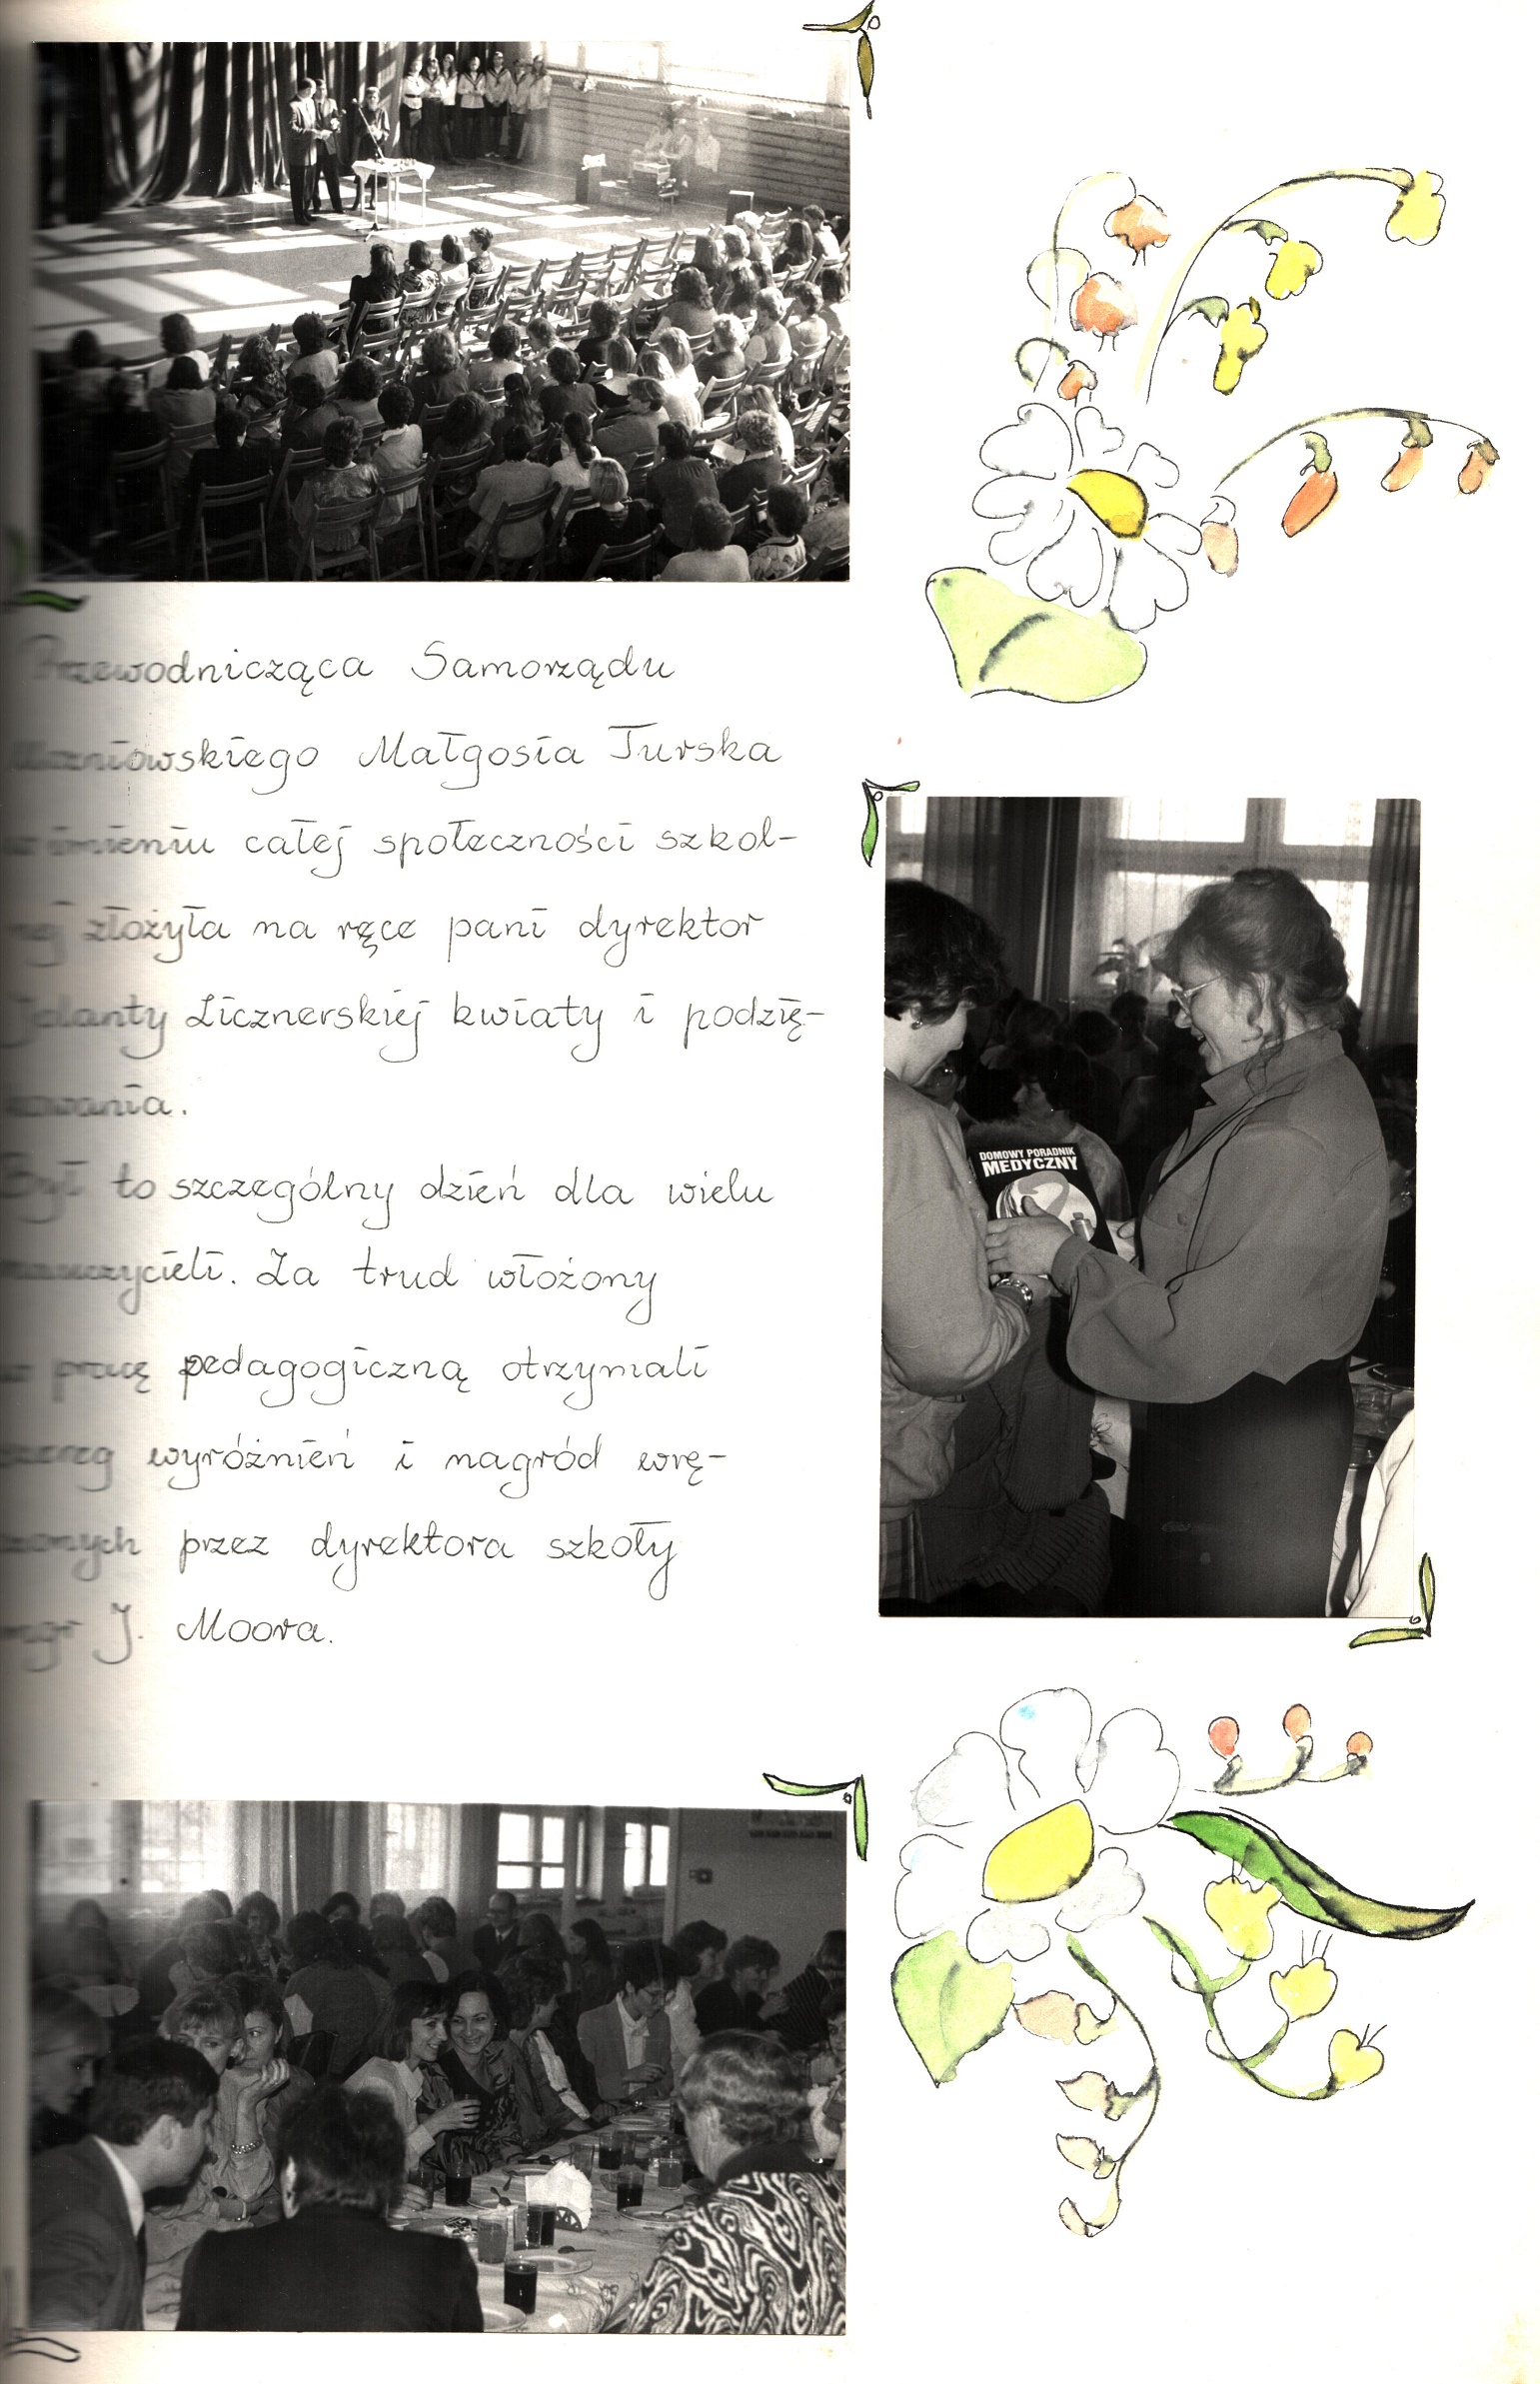 Przewodnicząca Samorządu
Uczniowskiego Małgosia Turska
w imieniu całej społeczności szkol-
nej złożyła na ręce pani dyrektor
Jolanty Licznerskiej kwiaty i podzię-
kowania.
Był to szczególny dzień dla wielu
nauczycieli. Za trud włożony
w pracę pedagogiczną otrzymali
szereg wyróżnień i nagród wrę-
czonych przez dyrektora szkoły
mgr J. Moora.
DOMOWY PORADNIK
MEDYCZNY